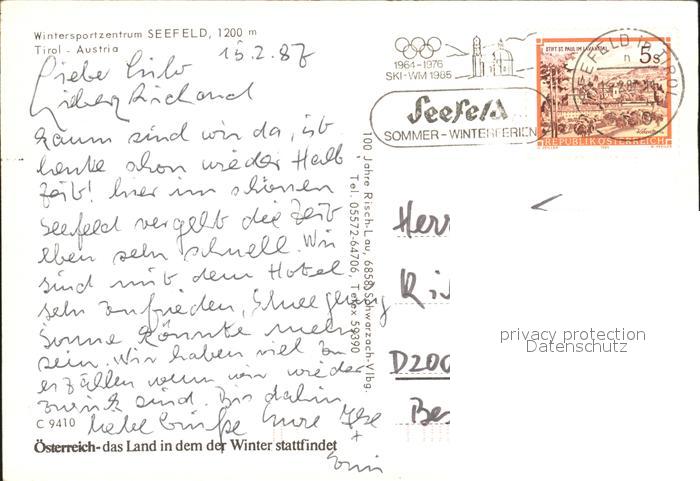 Wintersportzentrum SEEFELD, 1200 m
Tirol - Austria
15.2.87
Lieber
Lieber Richard
Kaum sind wir da, ist
heute schon wieder Halb
zeit! hier im schönen
Seefeld vergeht die Zeit
eben sehr schnell. Wir
sind mit dem Hotel
sehr zufrieden, Schnee genug
Sonne könnte mehr
sein. Wir haben viel zu
erzählen wenn wir wieder
zurück sind. Bis dahin
liebe Grüße Eure Ilse
+
Erwin
C 9410
Österreich-das Land in dem der Winter stattfindet
100 Jahre Risch-Lau, 6858 Schwarzach-Vlbg.
Tel. 05572-64706, Telex 59390
1964-1976
SKI-WM 1985
Seefeld
SOMMER-WINTERFERIEN
STIFT ST. PAUL IM LAVANTTAL
5s
REPUBLIK ÖSTERREICH
SEEFELD IN TIROL
Herr
Ri
D200
Bes
privacy protection
Datenschutz